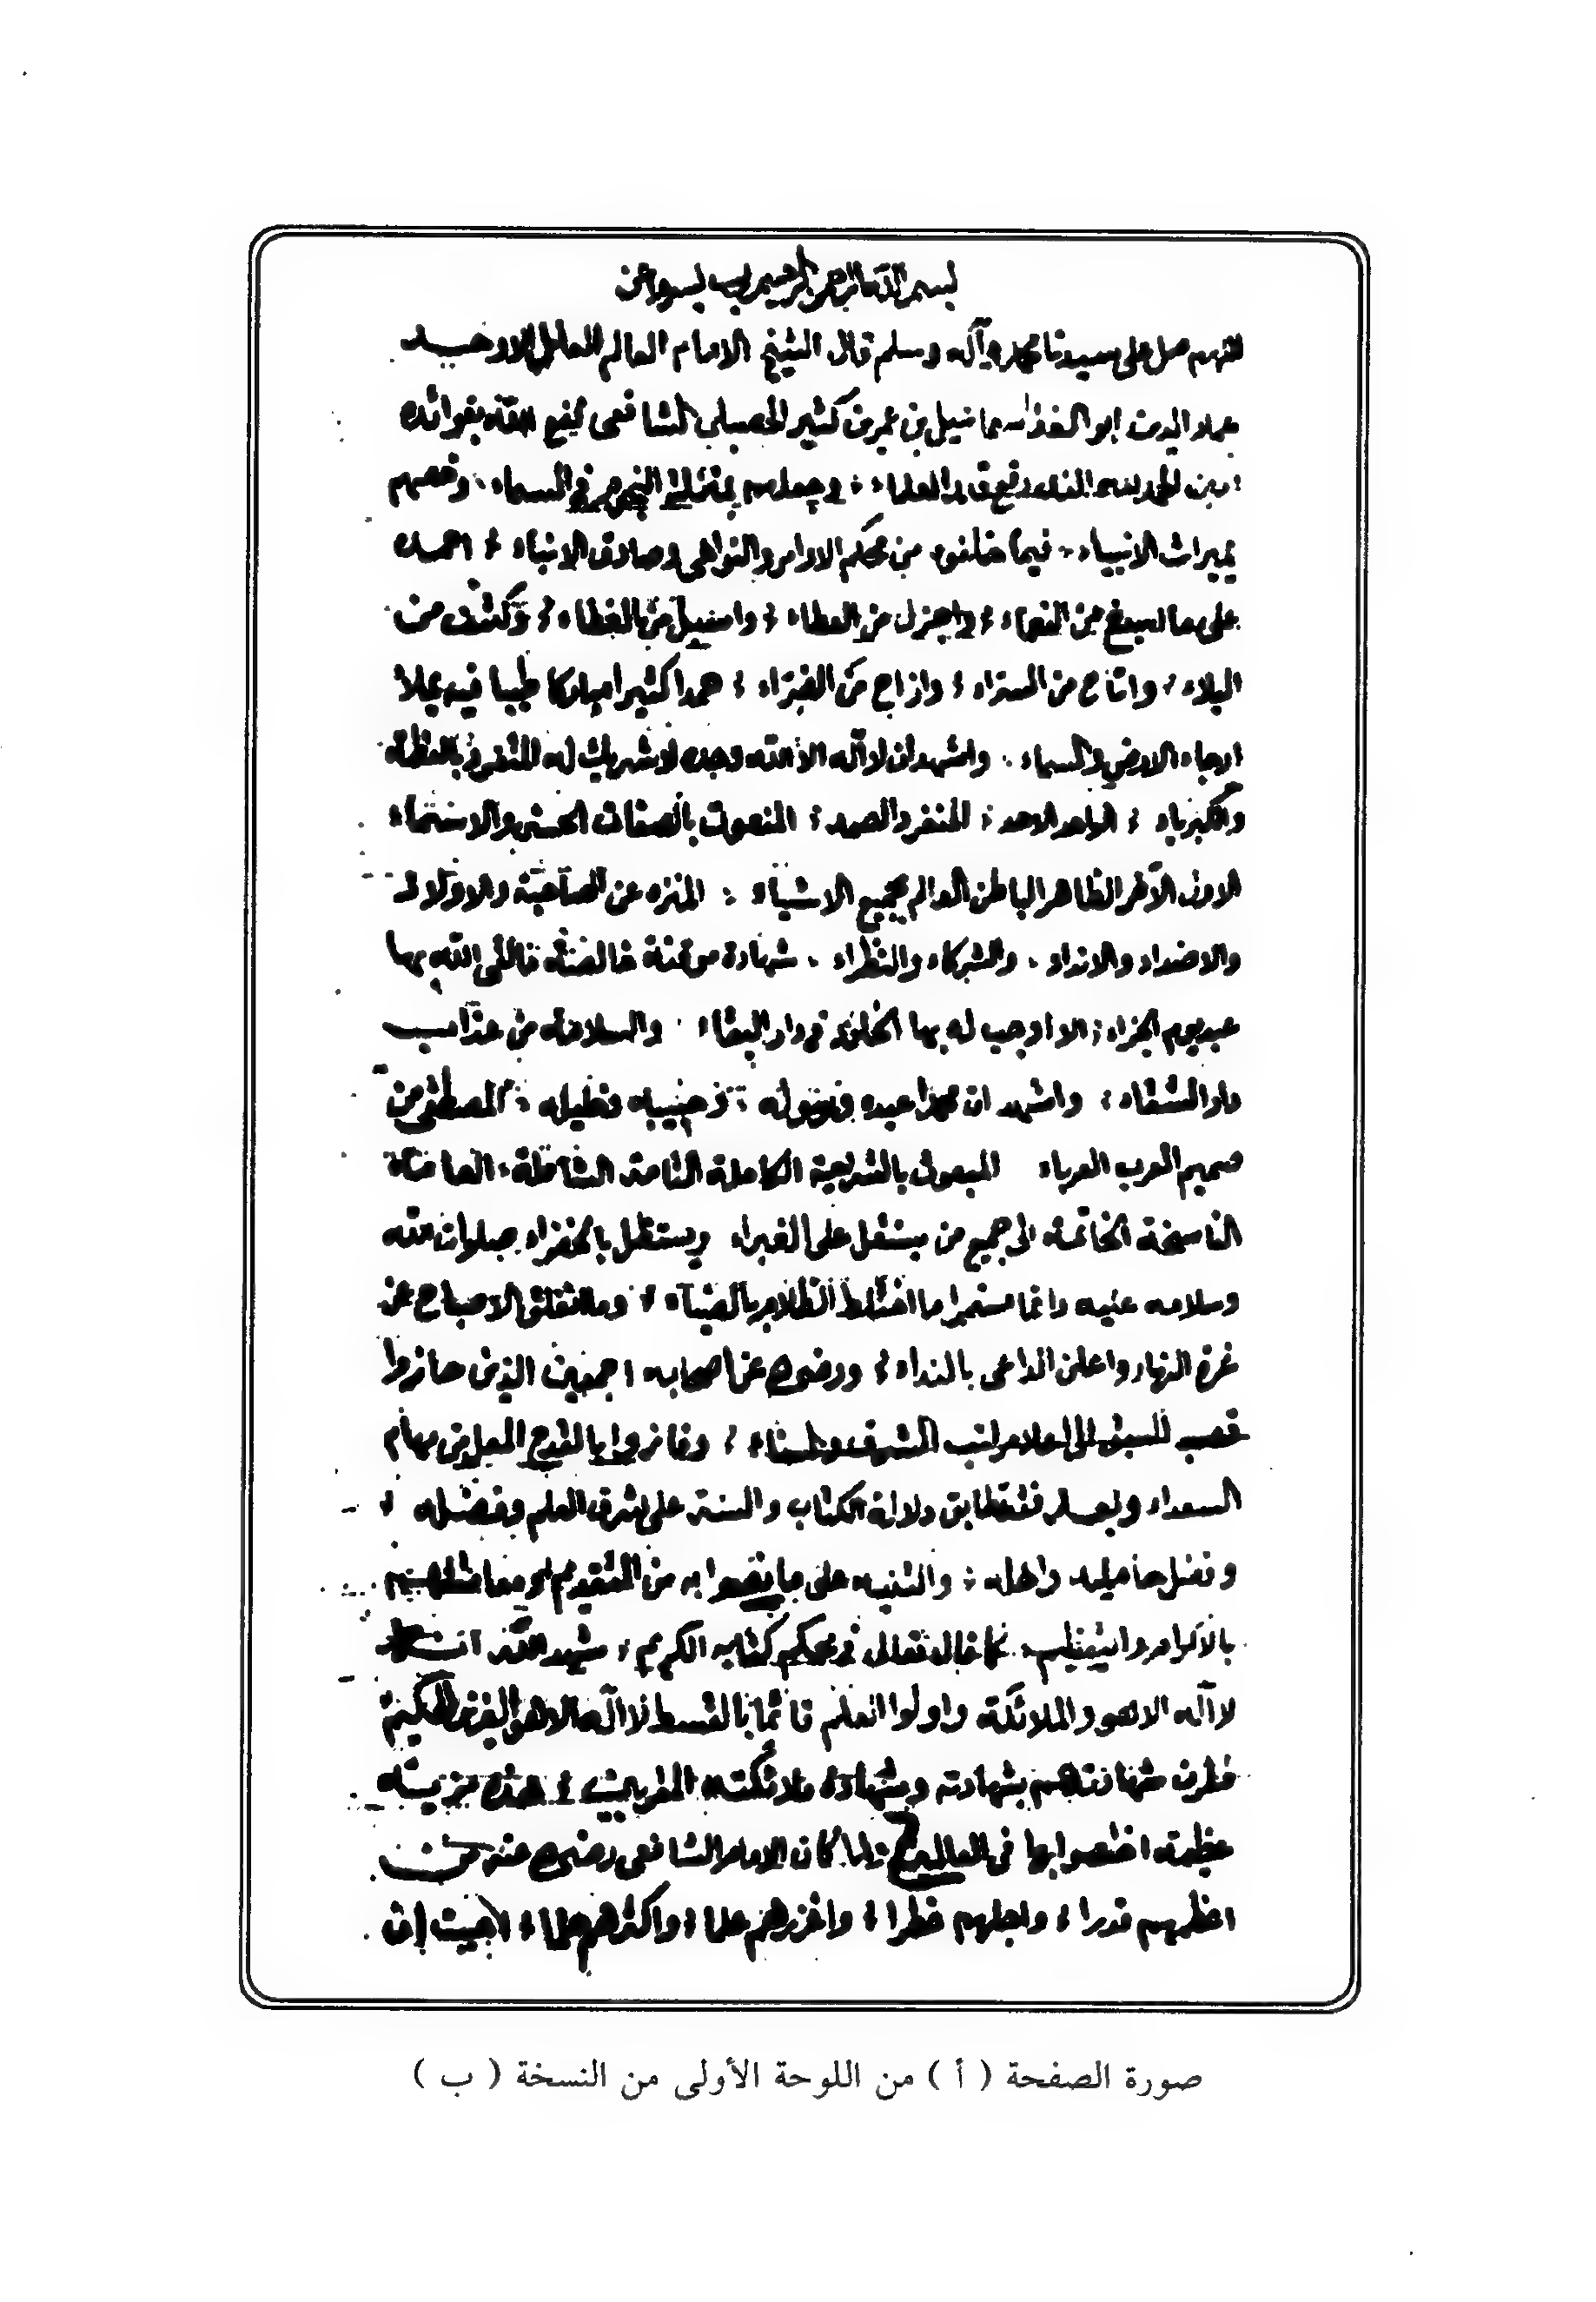 بسم الله الرحمن الرحيم رب يسر واعن
اللهم صل على سيدنا محمد وآله وسلم قال الشيخ الامام العالم العامل الاوحد
عماد الدين ابو الفدا اسماعيل بن عمر بن كثير الشافعى الله بفوائده
امين الحمد لله الذى رفع قدر العلماء وجعلهم بمنزلة النجوم فى السماء وخصهم
بميراث الانبياء فيما خلفوه من محكم الاوامر والنواهى وصادق الانباء احمده
على ما اسبغ من النعماء واجزل من العطاء واسبل من الغطاء وكشف من
البلاء واتاح من السراء وازاح من الضراء حمدا كثيرا مباركا طيبا فيه يملأ
ارجاء الارض والسماء واشهد ان لا آله الا الله وحده لا شريك له المتفرد بالعظمة
والكبرياء الواحد الاحد المنفرد الصمد المنعوت بالصفات الحسنى والاسماء
الاول الآخر الظاهر الباطن العالم بجميع الاشياء المنزه عن الصاحبة والاولاد
والاضداد والانداد والشركاء والنظراء شهادة موقنة خالصة ما لقى الله بها
عبد يوم الجزاء الا اوجب له بها الخلود فى دار البقاء والسلامة من عذاب
دار الشقاء واشهد ان محمدا عبده ورسوله وحبيبه وخليله المصطفى من
صميم العرب العرباء المبعوث بالشريعة الكاملة التامة الشاملة العامة
الناسخة الخاتمة الى جميع من يستقل على الغبراء ويستظل بالخضراء صلوات الله
وسلامه عليه دائما مستمرا ما اختلط الظلام بالضياء وما انفلق الاصباح عن
غرة النهار واعلن الداعى بالنداء ورضى الله عن اصحابه اجمعين الذين حازوا
قصب السبق الى اعلا مراتب الشرف والسناء وفازوا بالقدح المعلى من سهام
السعداء وبعد فقد تطابق دلالة الكتاب والسنة على شرف العلم وفضله
وفضل حامليه واهله والتنبيه على ما خصوا به من التقديم
بالاكرام والتعظيم كما قال تعالى فى محكم كتابه الكريم شهد الله انه
لا آله الا هو والملائكة واولوا العلم قائما بالقسط لا آله الا هو العزيز الحكيم
فقرن شهادتهم بشهادته وشهادة ملائكته المقربين وهذه مزيـة
عظيمة اختصوا بها فى العالمين ولما كان الامام الشافعى رضى الله عنه من
اعظمهم قدرا واجلهم خطرا واغزرهم علما واكثرهم حلما احببت ان
صورة الصفحة ( أ ) من اللوحة الأولى من النسخة ( ب )